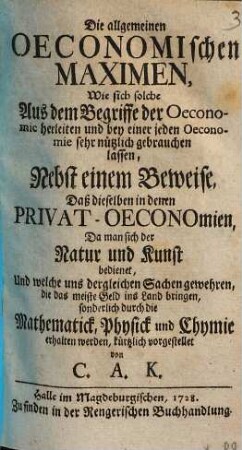 3
Die allgemeinen
OECONOMIschen
MAXIMEN,
Wie sich solche
Aus dem Begriffe der Oecono-
mie herleiten und bey einer jeden Oecono-
mie sehr nützlich gebrauchen
lassen,
Nebst einem Beweise,
Daß dieselben in denen
PRIVAT-OECONOmien,
Da man sich der
Natur und Kunst
bedienet,
Und welche uns dergleichen Sachen gewehren,
die das meiste Geld ins Land bringen,
sonderlich durch die
Mathematick, Physick und Chymie
erhalten werden, kürtzlich vorgestellet
von
C. A. K.
Halle im Magdeburgischen, 1728.
Zu finden in der Rengerischen Buchhandlung.